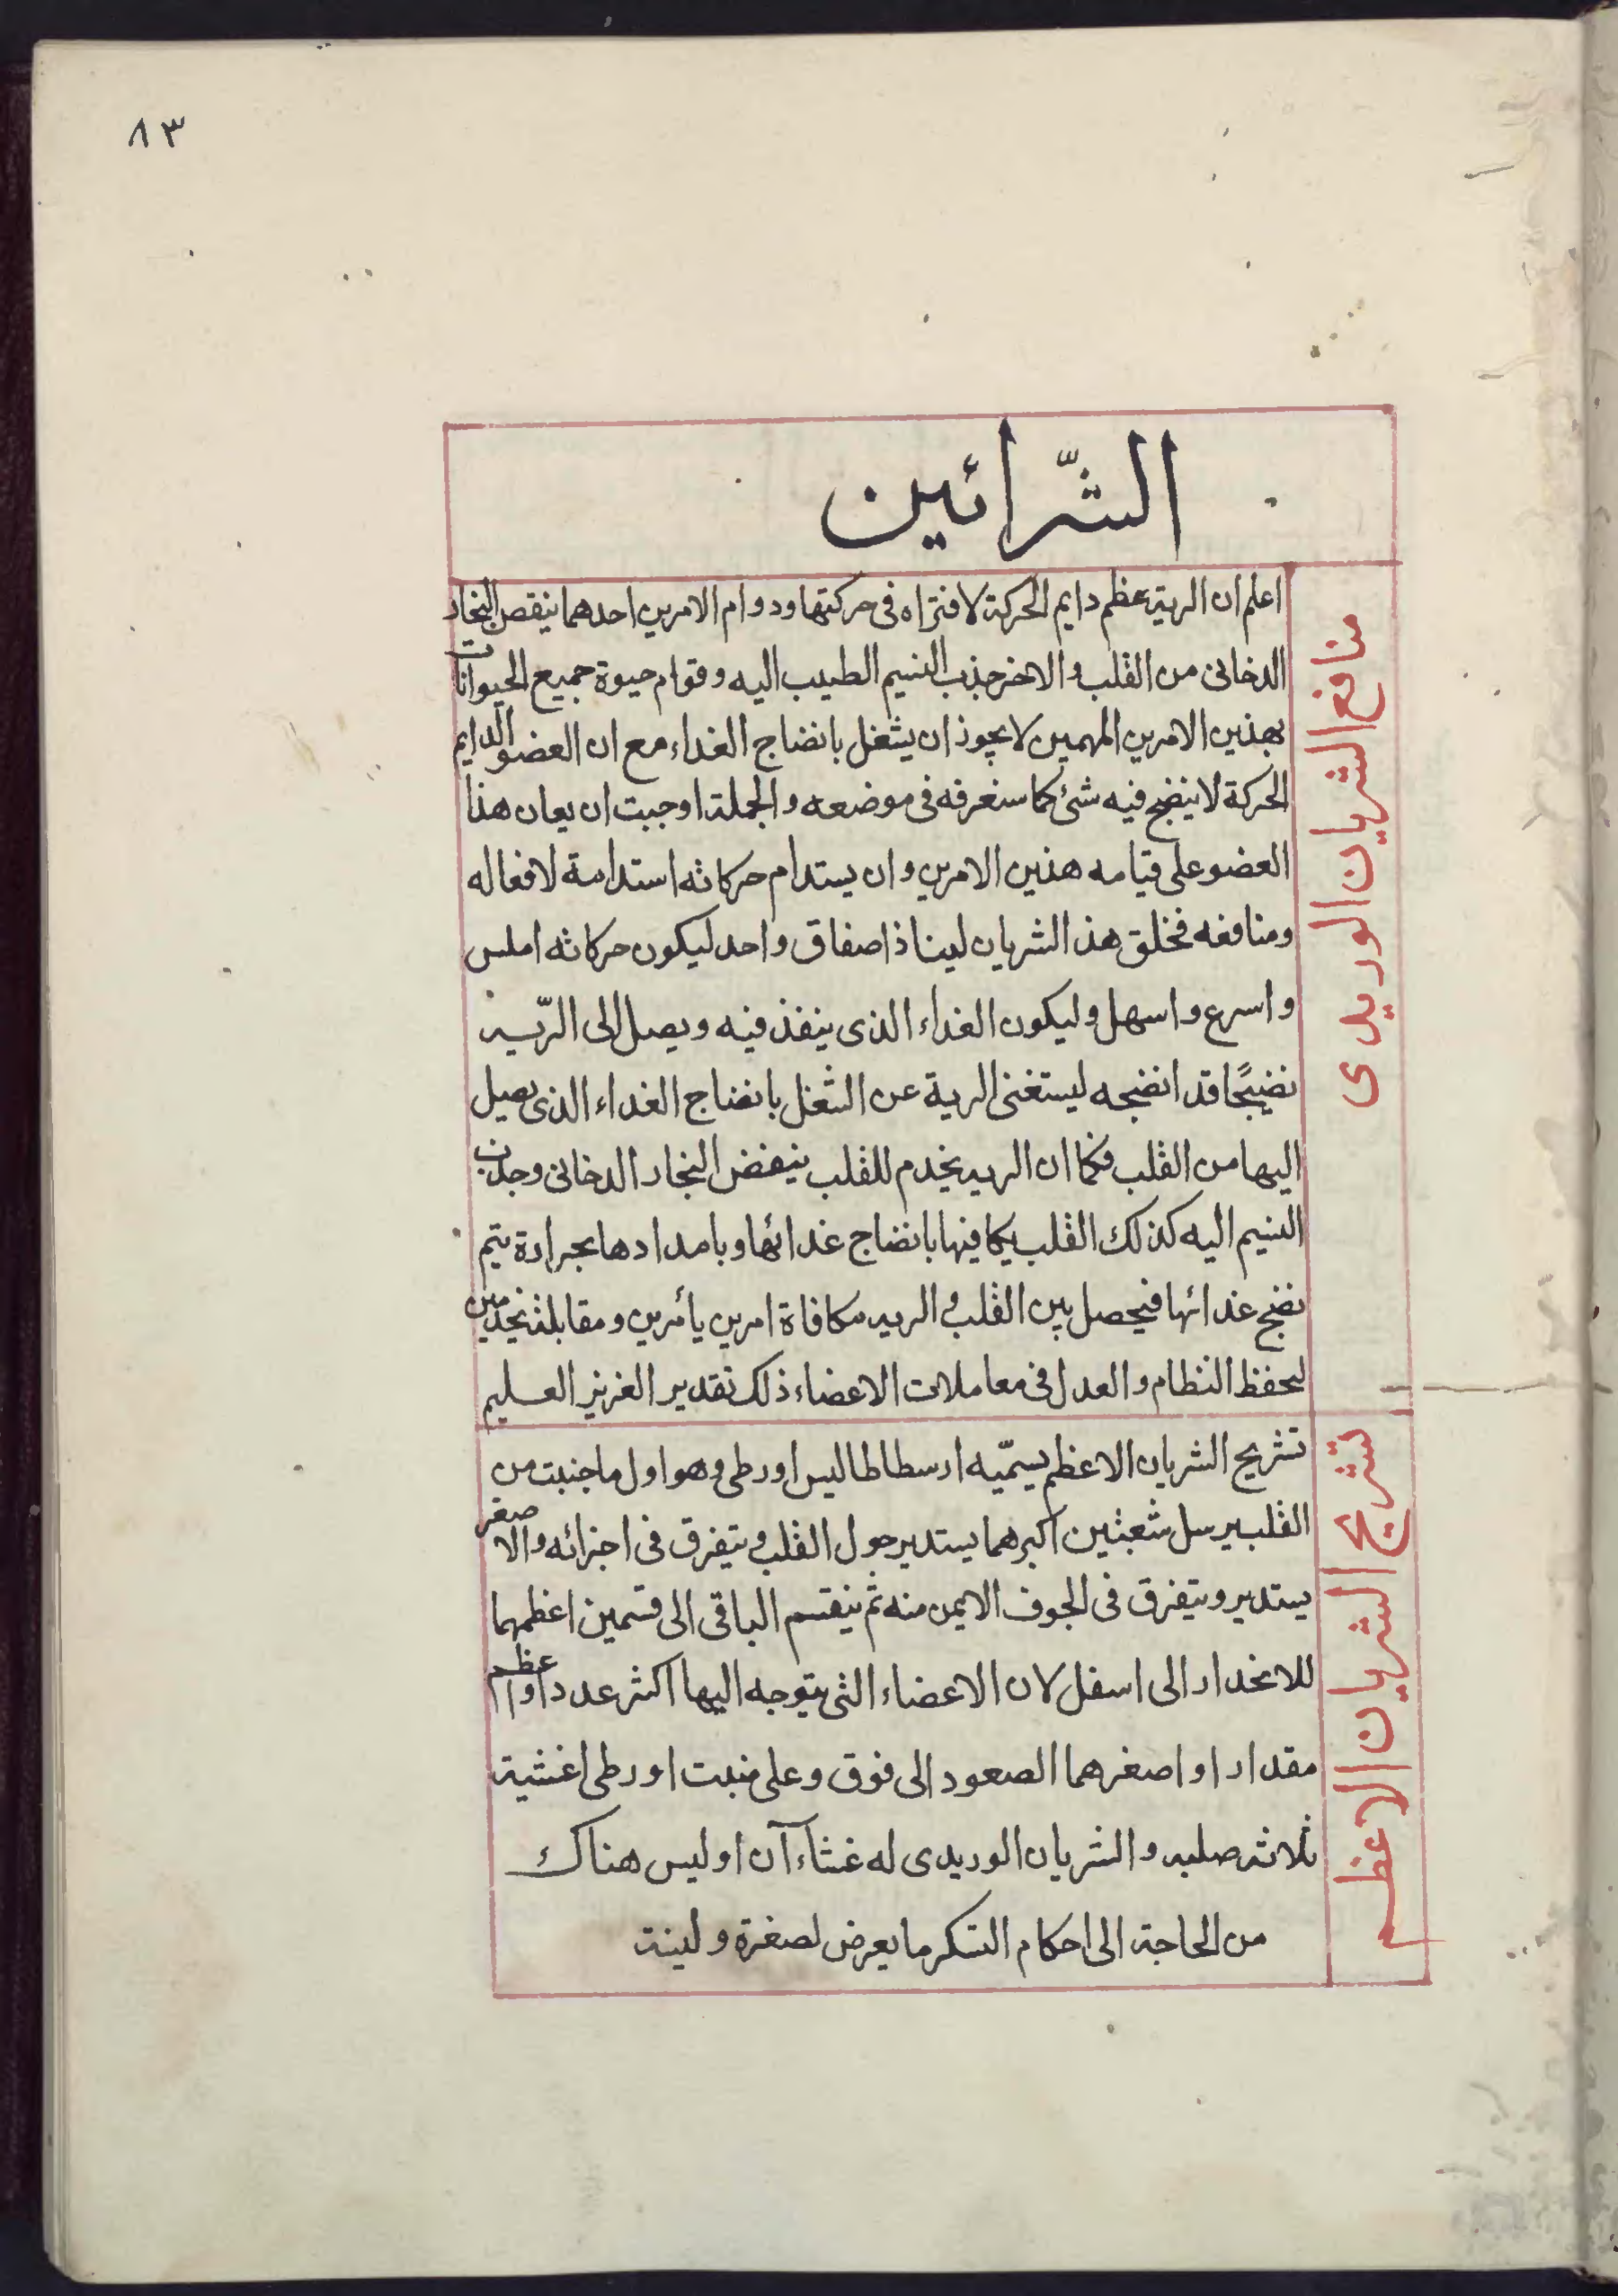 ٨٣
الشّرائين
منافع الشريان الوريدى
اعلم ان الرية عظم دايم الحركة لا فتراه فى حركتها ودوام الامرين احدهما ينقص البخار
الدخانى من القلب والاخر جذب النسيم الطيب اليه وقوام حيوة جميع الحيوانات
بهذين الامرين المهمين لا يجوز ان يشغل بانضاج الغداء مع ان العضو الدايم
الحركة لا ينضج فيه شئ كما سنعرفه فى موضعه والجملة اوجبت ان يعان هذا
العضو على قيامه هذين الامرين وان يستدام حركاته استدامة لافعاله
ومنافعه فخلق هذ الشريان لينا ذا صفاق واحد ليكون حركاته املس
واسرع واسهل وليكون الغداء الذى ينفذ فيه ويصل الى الرّية
نضيجًا قد انضجه ليستغنى الرية عن الشغل بانضاج الغداء الذى يصل
اليها من القلب فكما ان الريه يخدم للقلب ينفض البخار الدخانى وجذب
النسيم اليه كذلك القلب يكافيها بانضاج غدائها وبامدادها بحرارة يتم
نضج غدائها فيحصل بين القلب والريه مكافاة امرين يأمرين ومقابلة
لحفظ النظام والعدل فى معاملات الاعضاء ذلك تقدير العزيز العليم
تشريح الشريان الاعظم
تشريح الشريان الاعظم يسمّيه ارسطاطاليس اورطى وهو اول ما جنبت من
القلب يرسل شعبتين اكبرهما يستدير حول القلب ويتفرق فى اجزائه والاصغر
يستدير ويتفرق فى الجوف الايمن منه ثم ينقسم الباقى الى قسمين اعظمهما
للانحدار الى اسفل لان الاعضاء التى يتوجه اليها اكثر عددا واعظم
مقدارا واصغرهما الصعود الى فوق وعلى منبت اورطى اغشية
ثلاثة صلبه والشريان الوريدى له غشاءآن اوليس هناك
من الحاجة الى احكام السكر ما يعرض لصغرة ولينة